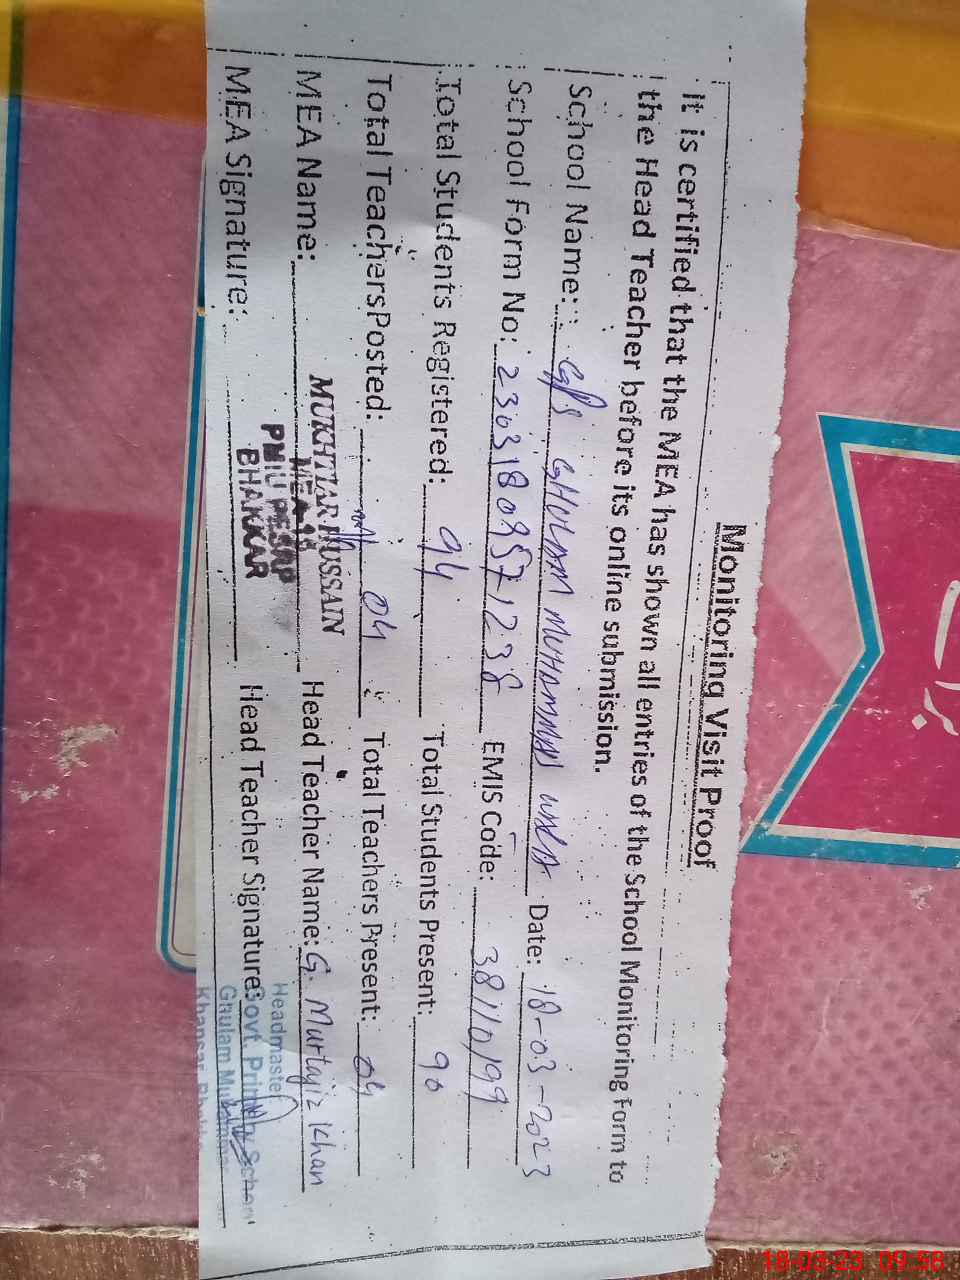 Monitoring Visit Proof
It is certified that the MEA has shown all entries of the School Monitoring Form to
the Head Teacher before its online submission.
School Name: GPS GHULAM MUHAMMAD WALA Date: 18-03-2023
School Form No: 23031809571238 EMIS Code: 38110199
Total Students Registered: 94 Total Students Present: 90
Total Teachers Posted: 04 Total Teachers Present: 04
MEA Name: MUKHTIAR HUSSAIN Head Teacher Name: G. Murtajiz Khan
MEA
PMIU PESRP
BHAKKAR
MEA Signature: Head Teacher Signature:
Headmaster
Govt. Primary School
Ghulam
Khansar
18-03-23 09:58